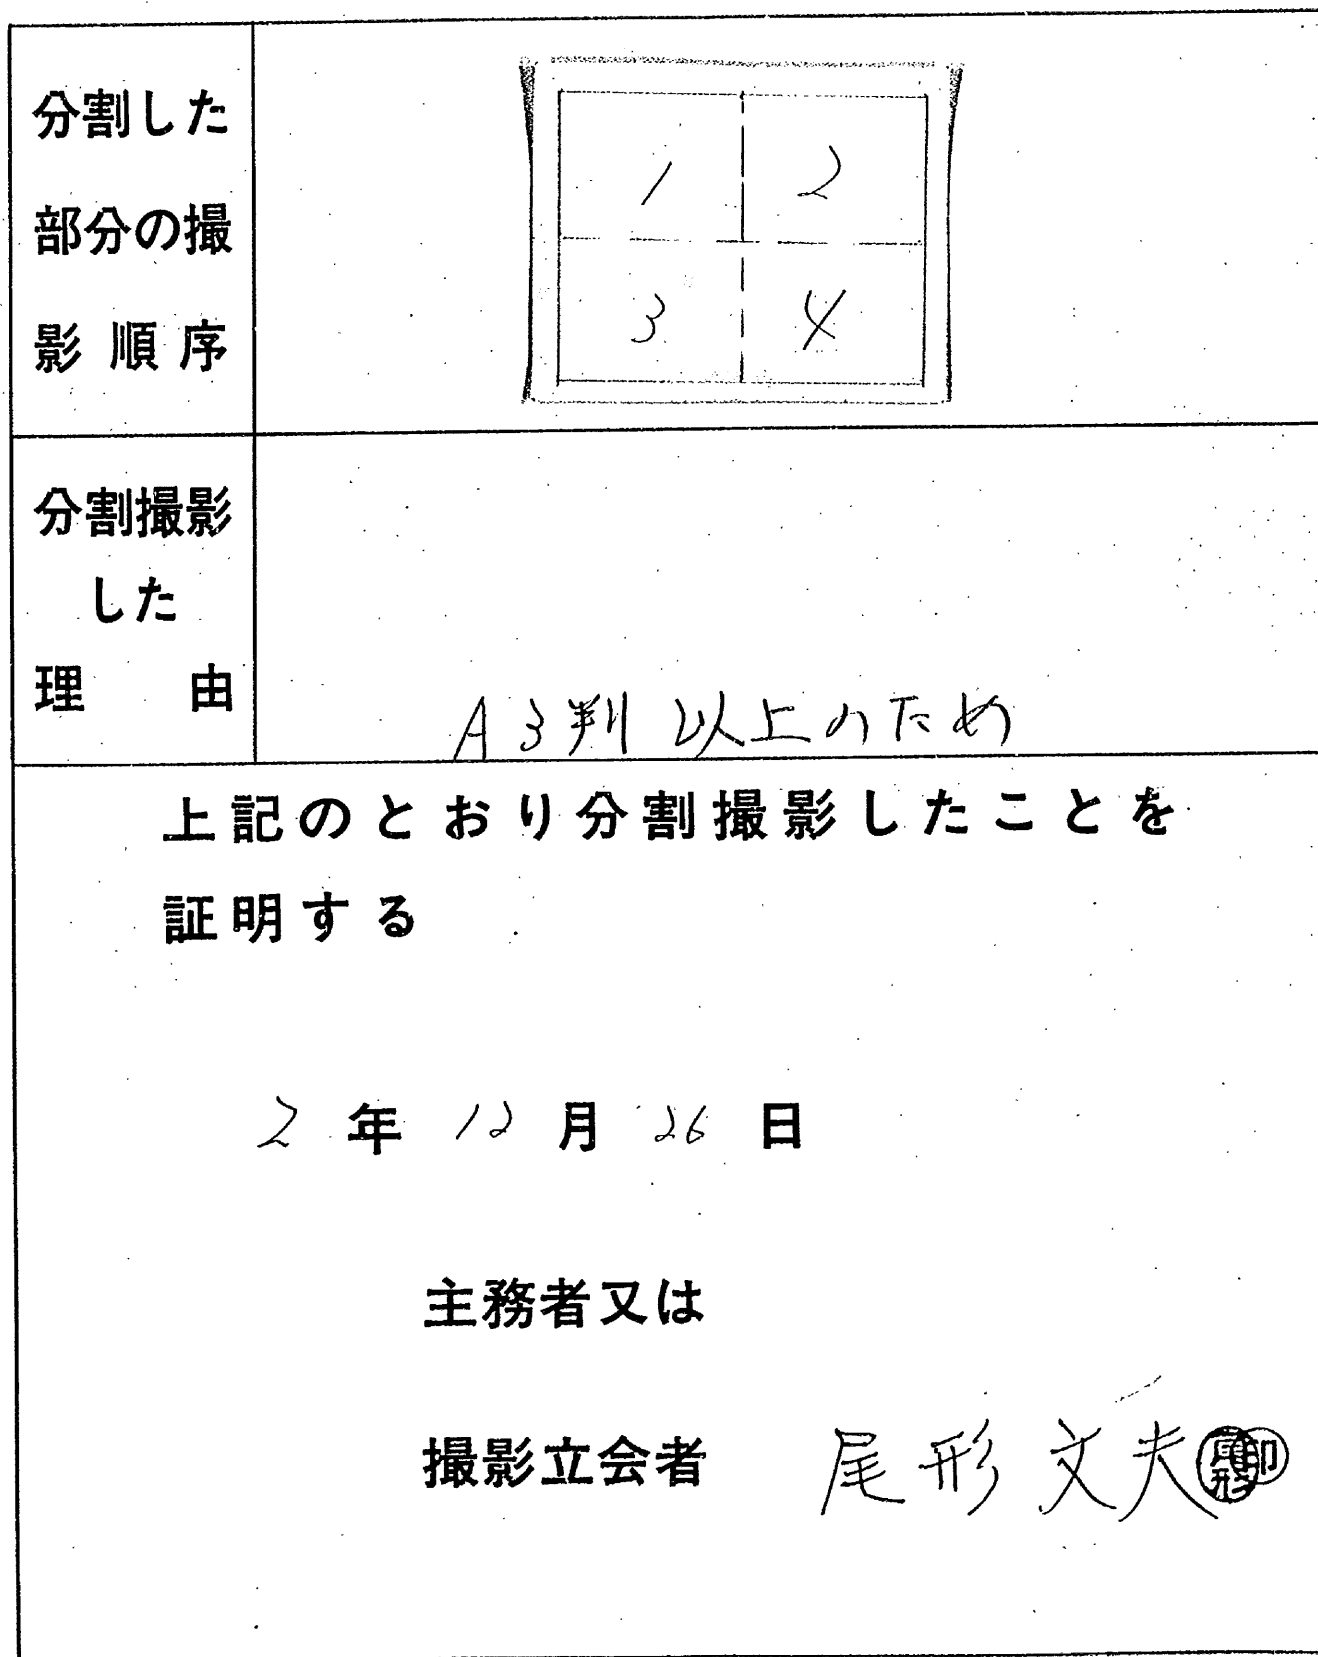 分割した
部分の撮
影順序
1 2
3 4
分割撮影
した
理由
A3判以上のため
上記のとおり分割撮影したことを
証明する
2年12月26日
主務者又は
撮影立会者 尾形文夫 尾形 印